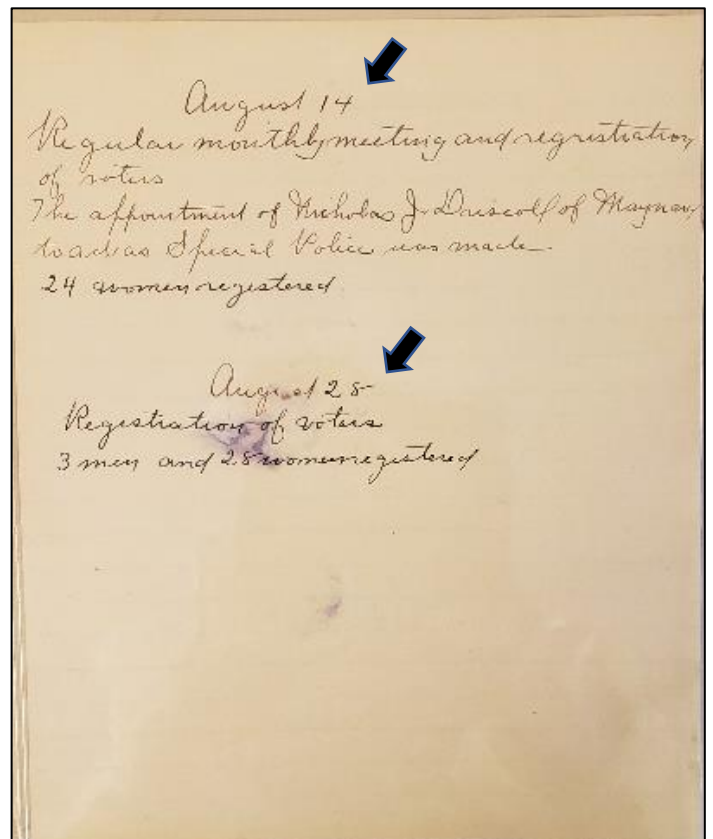 August 14
Regular monthly meeting and regristration
of voters
The appointment of Nicholas J. Driscoll of Maynard
to act as Special Police was made.
24 women registered
August 28
Registration of voters
3 men and 28 women registered